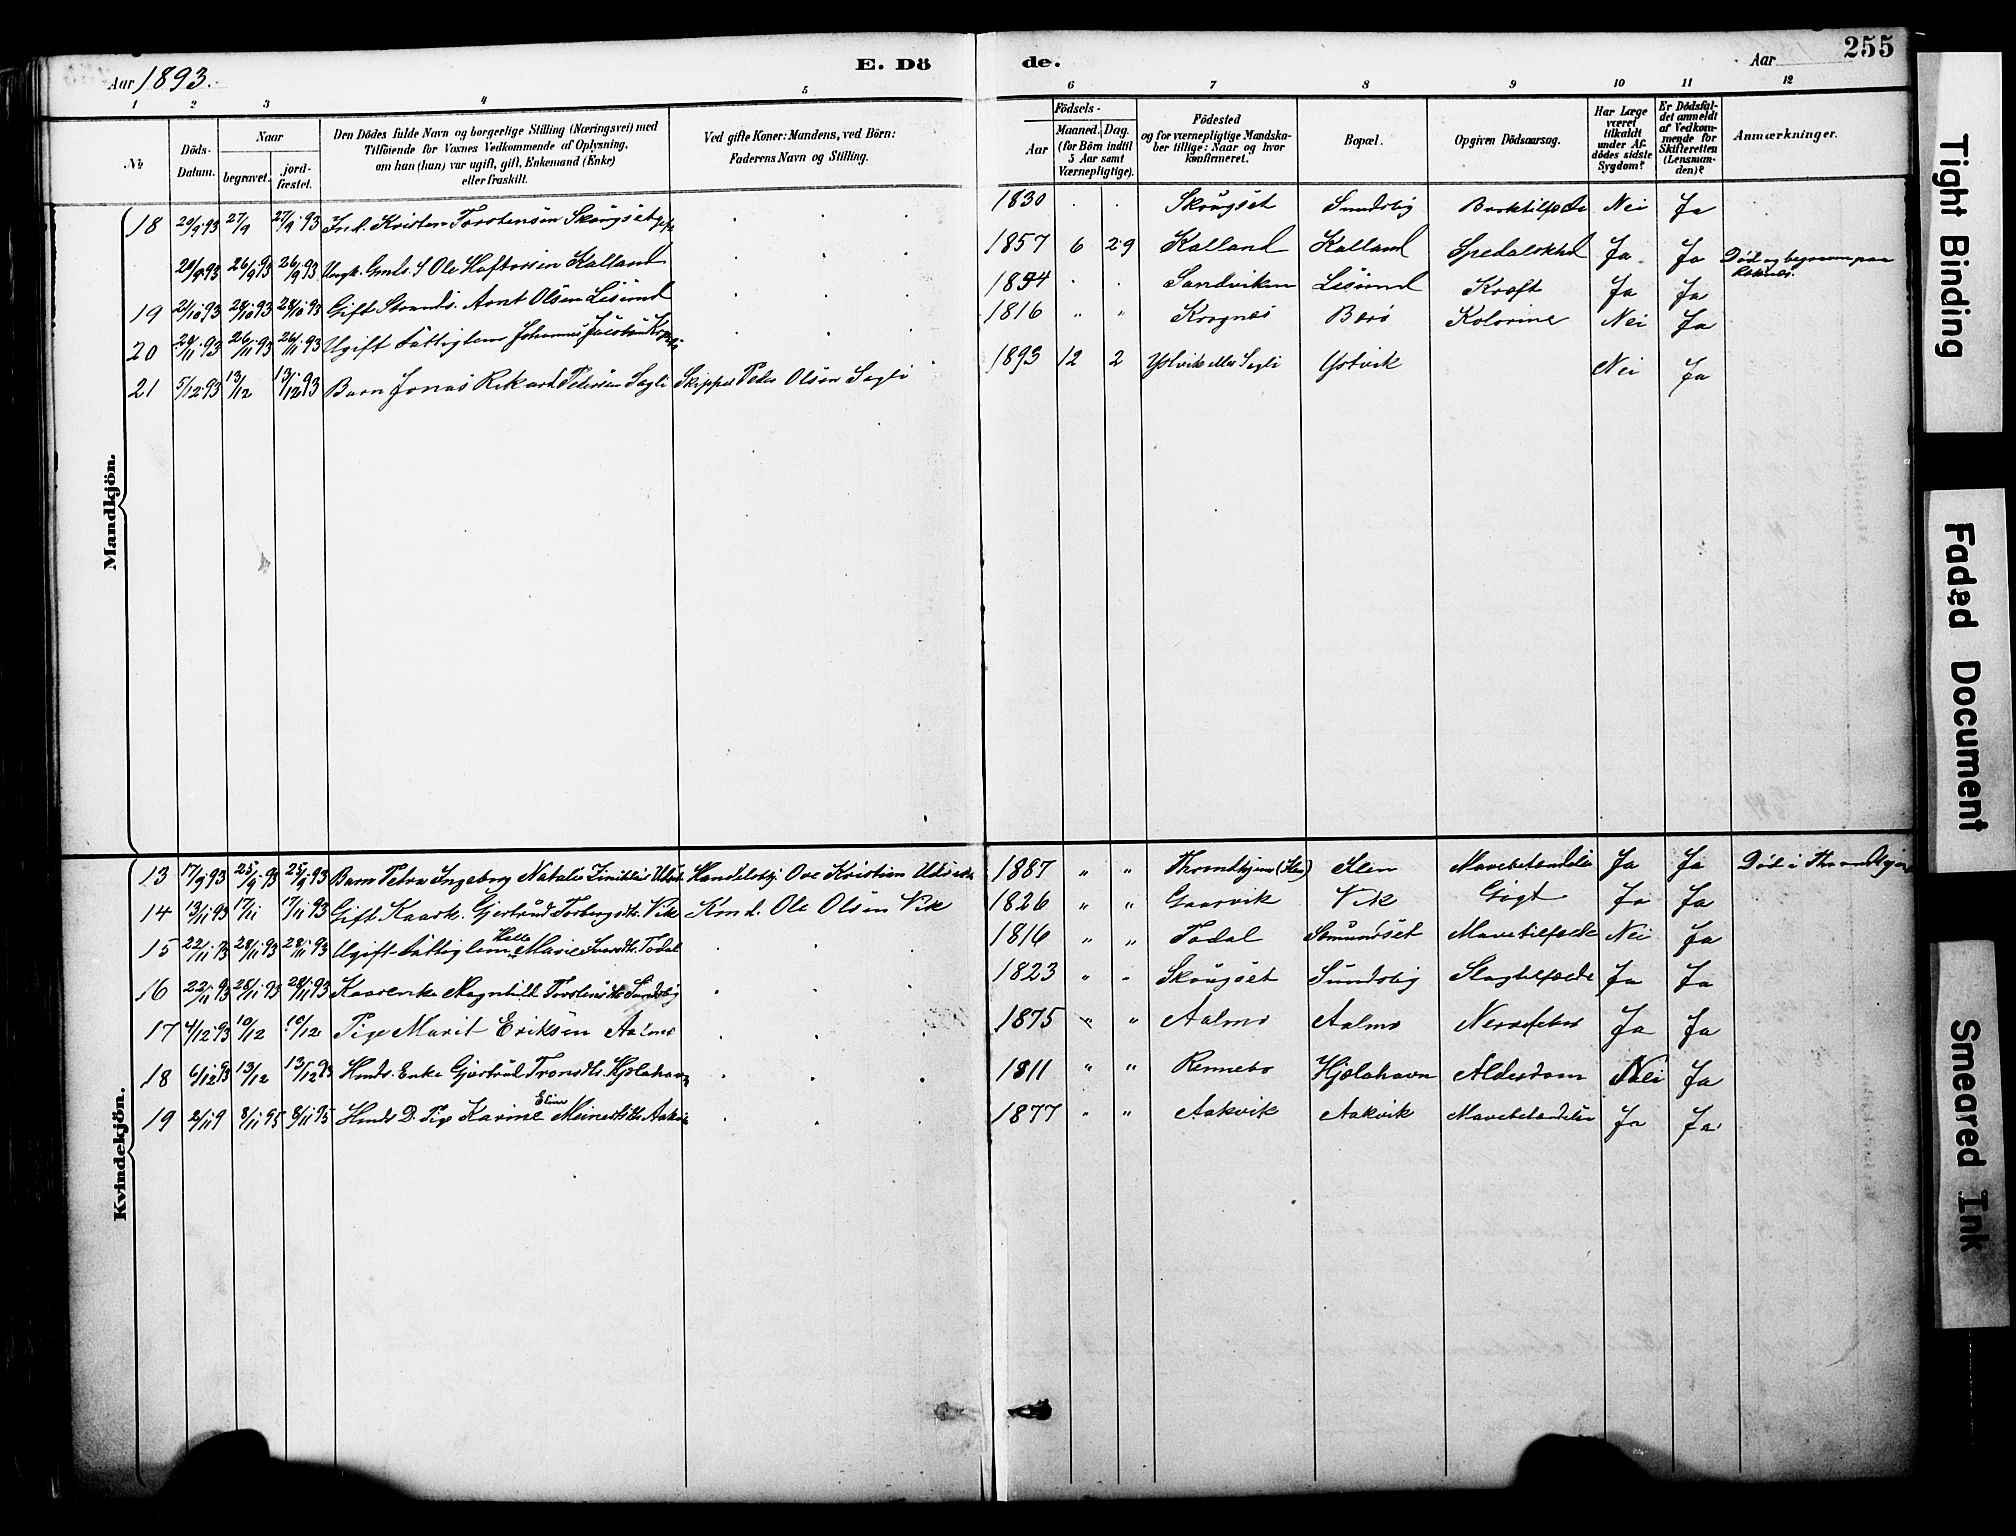 255
Aar 1893.
E. Dö
de.
Aar
1 2 3 4 5 6 7 8 9 10 11 12
No
Döds-Datum.
Naar
begravet.
jord-fæstet.
Den Dödes fulde Navn og borgerlige Stilling (Næringsvei) med
Tilföiende for Voxnes Vedkommende af Oplysning,
om han (hun) var ugift, gift, Enkemand (Enke)
eller fraskilt.
Ved gifte Koner: Mandens, ved Börn:
Faderens Navn og Stilling.
Födsels-
Aar
Maaned. Dag.
(for Börn indtil
5 Aar samt
Værnepligtige).
Födested
og for værnepligtige Mandska-
ber tillige: Naar og hvor
konfirmeret.
Bopæl.
Opgiven Dödsaarsag.
Har Læge
været
tilkaldt
under Af-
dödes sidste
Sygdom?
Er Dödsfal-
det anmeldt
af Vedkom-
mende for
Skifteretten
(Lensman-
den)?
Anmærkninger.
Mandkjön.
18 20/9 93 27/9 27/9 93 Ind. Kristen Torstensen Skaugset 1830 Skougset Sundsbig Nei Ja
20/9 93 26/9 93 26/9 93 Ungk. Ole Haftorsen Kalland 1857 6 29 Kalland Kalland Spedalskhd Ja Ja Död og begraven paa Reknes
19 21/10 93 28/10 93 28/10 93 Gift Strands. Arnt Olsen Lisund 1854 Sandviken Lisund Kræft Ja Ja
20 20/11 93 26/11 93 26/11 93 Ugift Fattiglem Johannes Jacobsen 1816 " Krognes Borö Kolerine Nei Ja
21 5/12 93 13/12 13/12 93 Barn Jonas Rikard Pedersen Sagli Skipper Peder Olsen Sagli 1893 12 2 Ystvik eller Sagli Ystvik Nei Ja
Kvindekjön.
13 17/9 93 25/9 93 25/9 93 Barn Petra Ingeborg Natalie Handelsbj Ove Kristian 1887 " " Throndhjem (Hlen) Hlen Mavebetændelse Ja Ja Död i Throndhjem
14 13/11 93 17/11 17/11 93 Gift Kaark. Gjertrud Torbergsdtr. Vik Kmd. Ole Olsen Vik 1826 " " Gaarvik Vik Gigt Ja Ja
15 22/11 93 28/11 93 28/11 93 Ugift Fattiglem Marie Todal 1816 " " Todal Somundset Mavetilfælde Nei Ja
16 22/11 93 28/11 93 28/11 93 Kaarenke Magnhild Torstensdtr Sundsbig 1823 " " Skougset Sundsbig Slagtilfælde Ja Ja
17 4/12 93 10/12 10/12 Pige Marit Eriksen Aalmo 1875 " " Aalmo Aalmo Nervefeber Ja Ja
18 6/12 93 13/12 13/12 93 Hmds. Enke Gjertrud Tronsdtr. Hjelahavn 1811 " " Rennebo Hjelahavn Alderdom Nei Ja
19 2/11 9 8/11 95 8/11 95 Hmds D. Pige Karine Eline Meinertsdtr Aakvik 1877 " " Aakvik Aakvik Mavebetændelse Ja Ja
Tight Binding
Faded Document
Smeared Ink